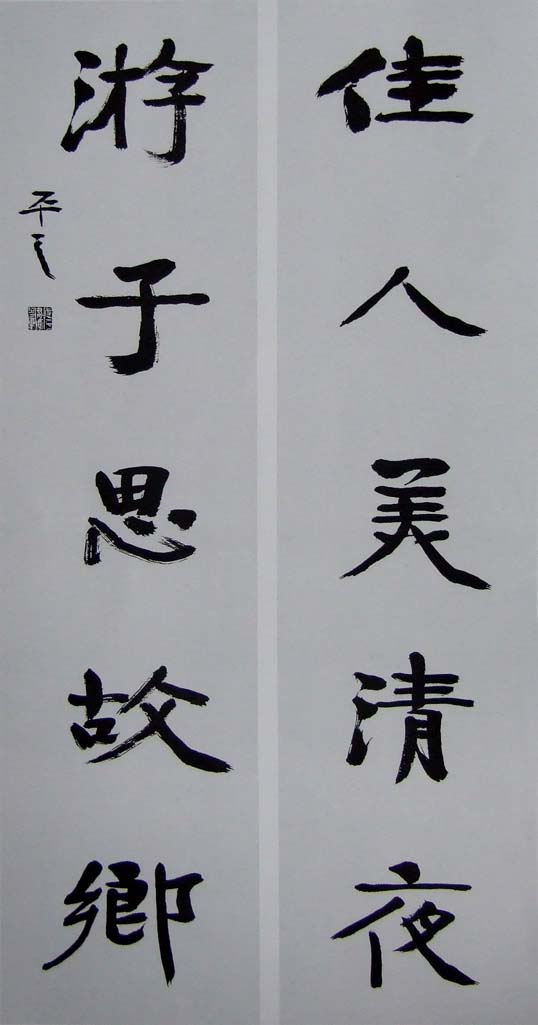 佳人美清夜
游子思故鄉
平之